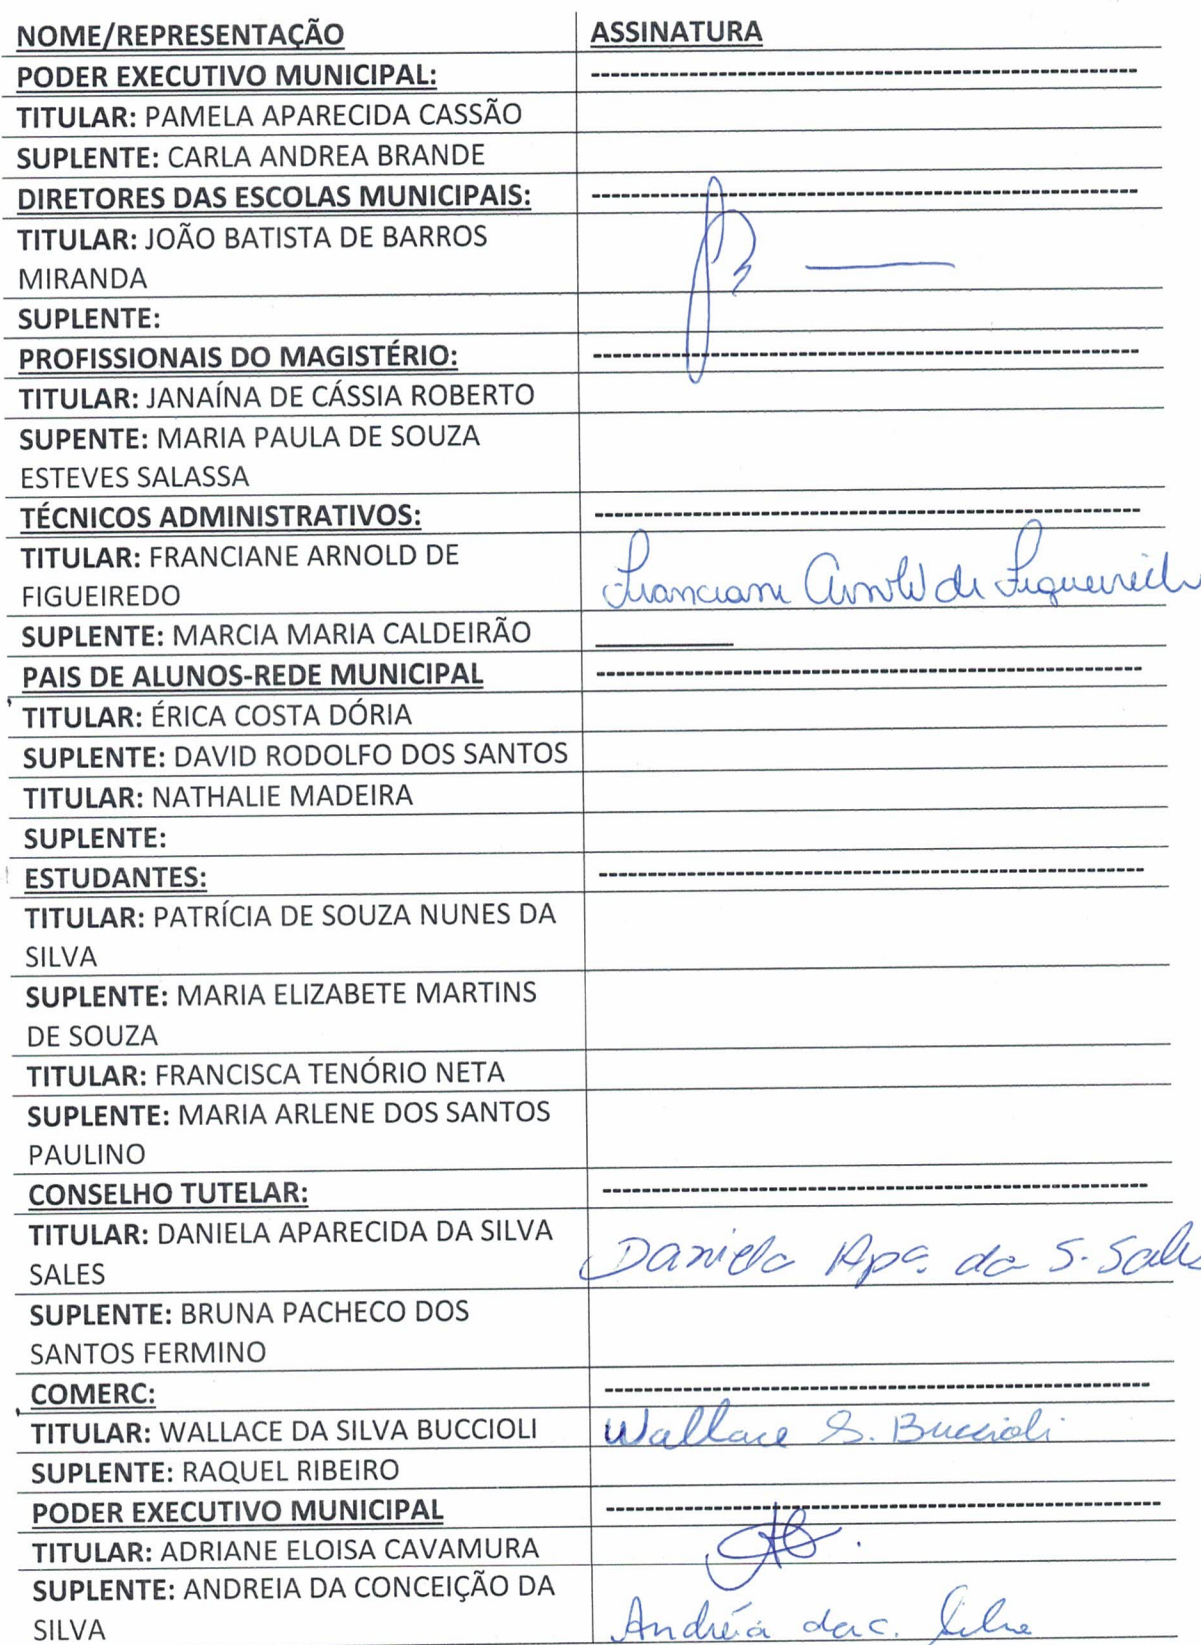 NOME/REPRESENTAÇÃO ASSINATURA
PODER EXECUTIVO MUNICIPAL: ----------------------------------------------------------
TITULAR: PAMELA APARECIDA CASSÃO
SUPLENTE: CARLA ANDREA BRANDE
DIRETORES DAS ESCOLAS MUNICIPAIS: ----------------------------------------------------------
TITULAR: JOÃO BATISTA DE BARROS
MIRANDA
SUPLENTE:
PROFISSIONAIS DO MAGISTÉRIO: ----------------------------------------------------------
TITULAR: JANAÍNA DE CÁSSIA ROBERTO
SUPENTE: MARIA PAULA DE SOUZA
ESTEVES SALASSA
TÉCNICOS ADMINISTRATIVOS: ----------------------------------------------------------
TITULAR: FRANCIANE ARNOLD DE
FIGUEIREDO Franciane Arnold de Figueiredo
SUPLENTE: MARCIA MARIA CALDEIRÃO
PAIS DE ALUNOS-REDE MUNICIPAL ----------------------------------------------------------
TITULAR: ÉRICA COSTA DÓRIA
SUPLENTE: DAVID RODOLFO DOS SANTOS
TITULAR: NATHALIE MADEIRA
SUPLENTE:
ESTUDANTES: ----------------------------------------------------------
TITULAR: PATRÍCIA DE SOUZA NUNES DA
SILVA
SUPLENTE: MARIA ELIZABETE MARTINS
DE SOUZA
TITULAR: FRANCISCA TENÓRIO NETA
SUPLENTE: MARIA ARLENE DOS SANTOS
PAULINO
CONSELHO TUTELAR: ----------------------------------------------------------
TITULAR: DANIELA APARECIDA DA SILVA
SALES Daniela Apª. da S. Sales
SUPLENTE: BRUNA PACHECO DOS
SANTOS FERMINO
COMERC: ----------------------------------------------------------
TITULAR: WALLACE DA SILVA BUCCIOLI Wallace S. Buccioli
SUPLENTE: RAQUEL RIBEIRO
PODER EXECUTIVO MUNICIPAL ----------------------------------------------------------
TITULAR: ADRIANE ELOISA CAVAMURA
SUPLENTE: ANDREIA DA CONCEIÇÃO DA
SILVA Andréia da C. Silva